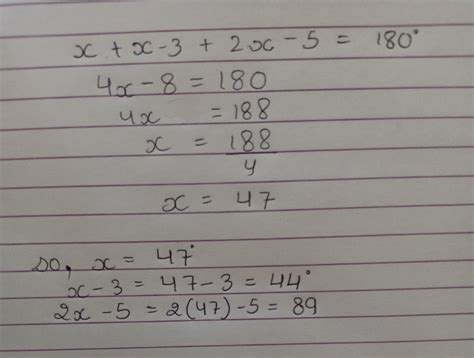 x + x - 3 + 2x - 5 = 180°
4x - 8 = 180
4x = 188
x = 188/4
x = 47
so, x = 47°
x - 3 = 47 - 3 = 44°
2x - 5 = 2(47) - 5 = 89